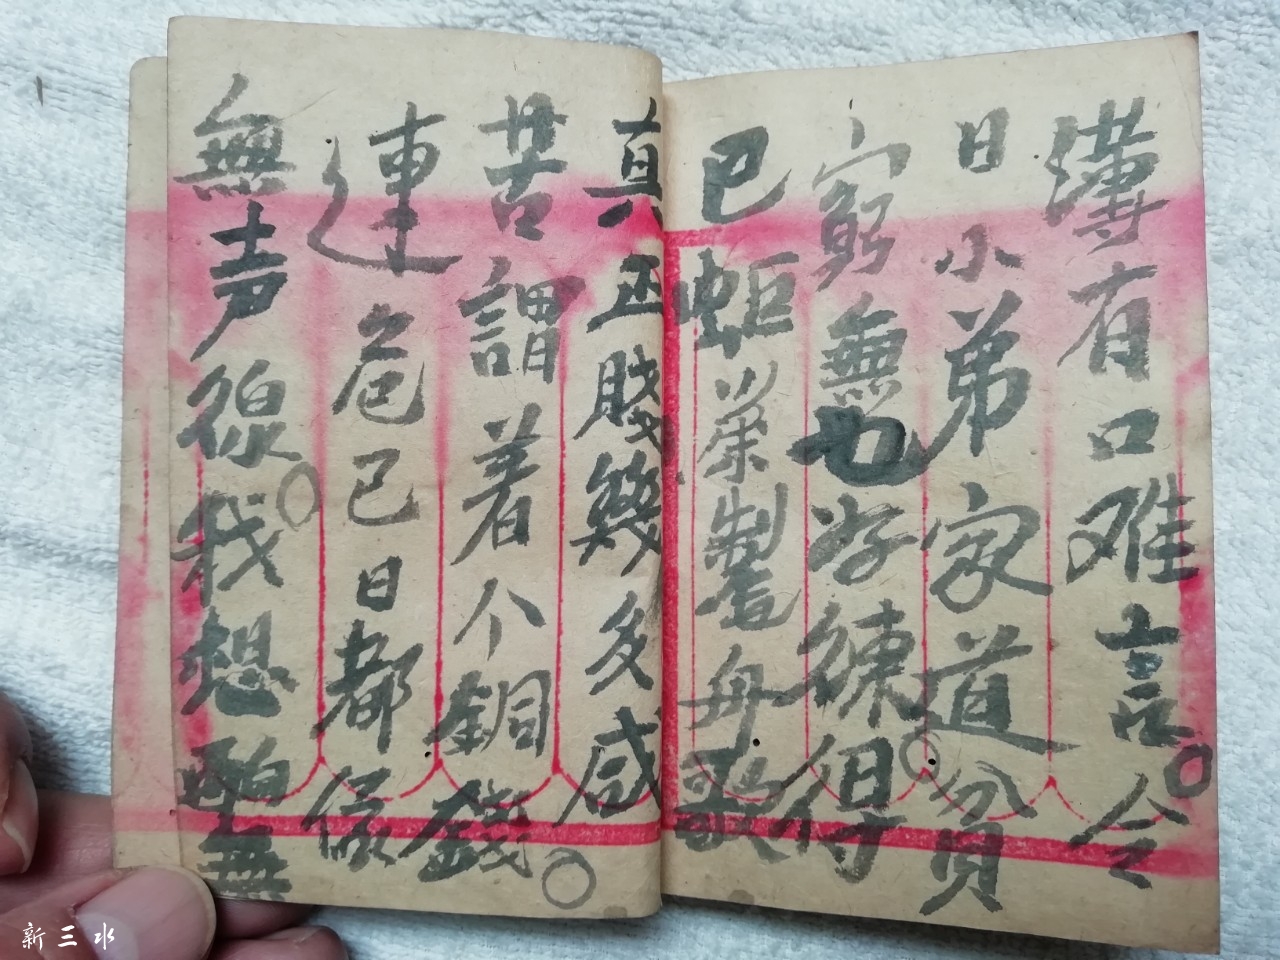 薄有口难言。今
日小弟家道貧
窮無也好練。得
巴蚷菜製毋歌
真正賤幾多咸
苦謂着个銅錢。
連危已日都依
無声線。我想無
新三水